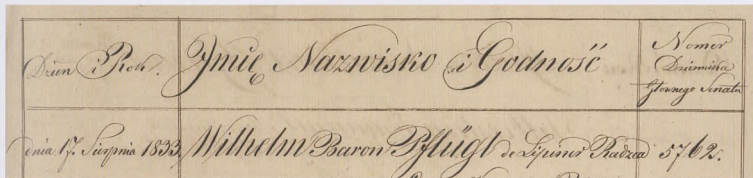 Dzien i Rok.
Jmię Nazwisko i Godność
Nomer
Dziennika
Głownego Senatu
dnia 17. Sierpnia 1833.
Wilhelm Baron Pflügl de Lipiner Radzca
5762.